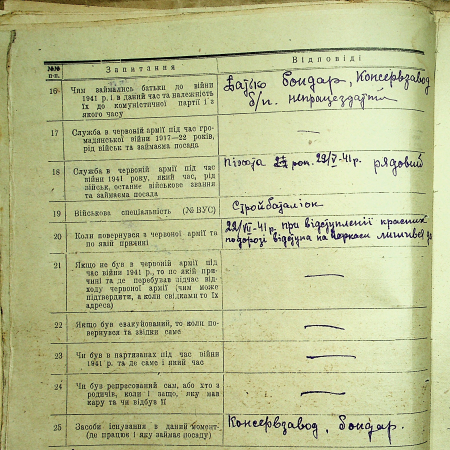 №№ п-п.
Запитання
Відповіді
16
Чим займались батьки до війни
1941 р. і в даний час та належність
їх до комуністичної партії і з
якого часу
Батько бондар, Консервзавод
б/п. непрацездатній
17
Служба в червоній армії під час гро-
мадянської війни 1917—22 років,
рід військ та займаема посада
—
18
Служба в червоній армії під час
війни 1941 року, який час, рід
військ, останне військове звання
та займаема посада
піхота рядовий
19
Військова спеціяльність (№ ВУС)
Стройбаталіон
20
Коли повернувся з червоної армії та
по якій причині
при відступленії красних
по дорозі
21
Якщо не був в червоній армії під
час війни 1941 р., то по якій при-
чині та де перебував підчас від-
ходу червоної армії (чим може
підтвердити, а коли свідками то їх
адреса)
—
22
Якщо був евакуйований, то коли по-
вернувся та звідки саме
—
23
Чи був в партизанах під час війни
1941 р. та де саме і який час
—
24
Чи був репресований сам, або хто з
родичів, коли і защо, яку мав
кару та чи відбув її
—
25
Засоби існування в даний момент
(де працює і яку займає посаду)
Консервзавод, бондар.